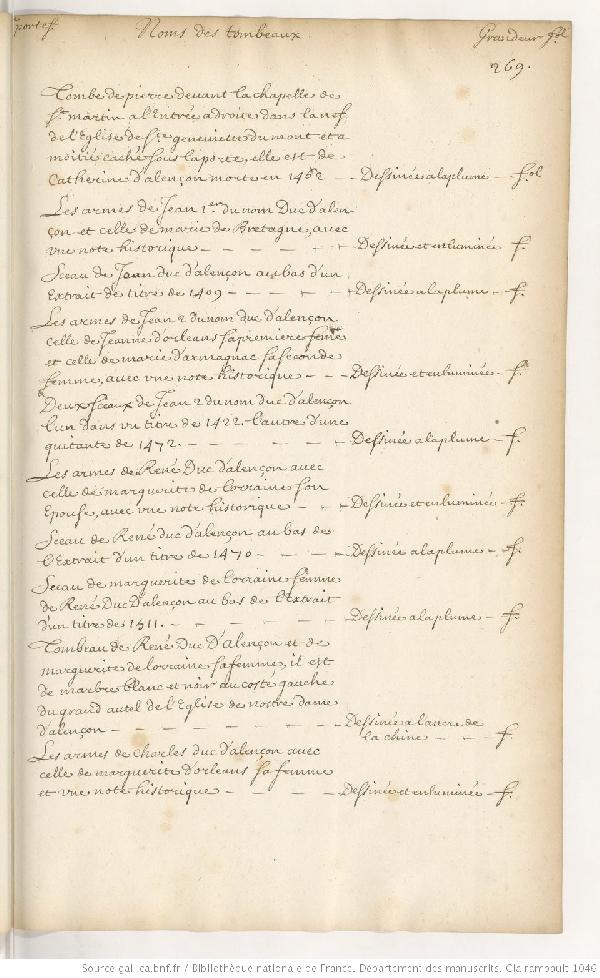 portef. Noms des tombeaux Grandeur fol
269.
Tombe de pierre devant la chapelle de
St. martin a l'Entrée a droite dans la nef
de l'Eglise de Ste genevieve du mont et a
moitié caché sous la porte, elle est de
Catherine d'alençon morte en 1462 – Dessinée a la plume – fol
Les armes de Jean 1er du nom Duc d'alen
çon et celle de marie de Bretagne, avec
une note historique – – – – – Dessinée et enluminée f.
Sceau de Jean duc d'alençon au bas d'un
Extrait de titre de 1409 – – – – Dessinée a la plume – f.
Les armes de Jean 2 du nom duc d'alençon
celle de Jeanne d'orleans sa premiere feme
et celle de marie d'armagnac sa seconde
femme, avec une note historique – – – Dessinée et enluminées – f.
Deux sceaux de Jean 2 du nom duc d'alençon
l'un dans un titre de 1422. l'autre d'une
quitante de 1472. – – – – – Dessinée a la plume – f.
Les armes de René Duc d'alençon avec
celle de marguerite de lorraine son
Epouse, avec une note historique – – Dessinée et enluminée – f.
Sceau de René duc d'alençon au bas de
l'Extrait d'un titre de 1470 – – – – Dessinée a la plume – f.
Sceau de marguerite de lorraine femme
de René Duc D'alençon au bas de l'Extrait
d'un titre de 1511. – – – – – Dessinée a la plume – f.
Tombeau de René Duc D'alençon et de
marguerite de lorraine sa femme, il est
de marbre blanc et noir au costé gauche
du grand autel de l'Eglise de nostre dame
d'alençon – – – – – – – Dessinée a l'ancre de
la chine – – f.
Les armes de Charles duc d'alençon avec
celle de marguerite d'orleans sa femme
et une note historique – – – – Dessinée et enluminée – f.
Source gallica.bnf.fr / Bibliothèque nationale de France. Département des manuscrits. Clairambault 1046